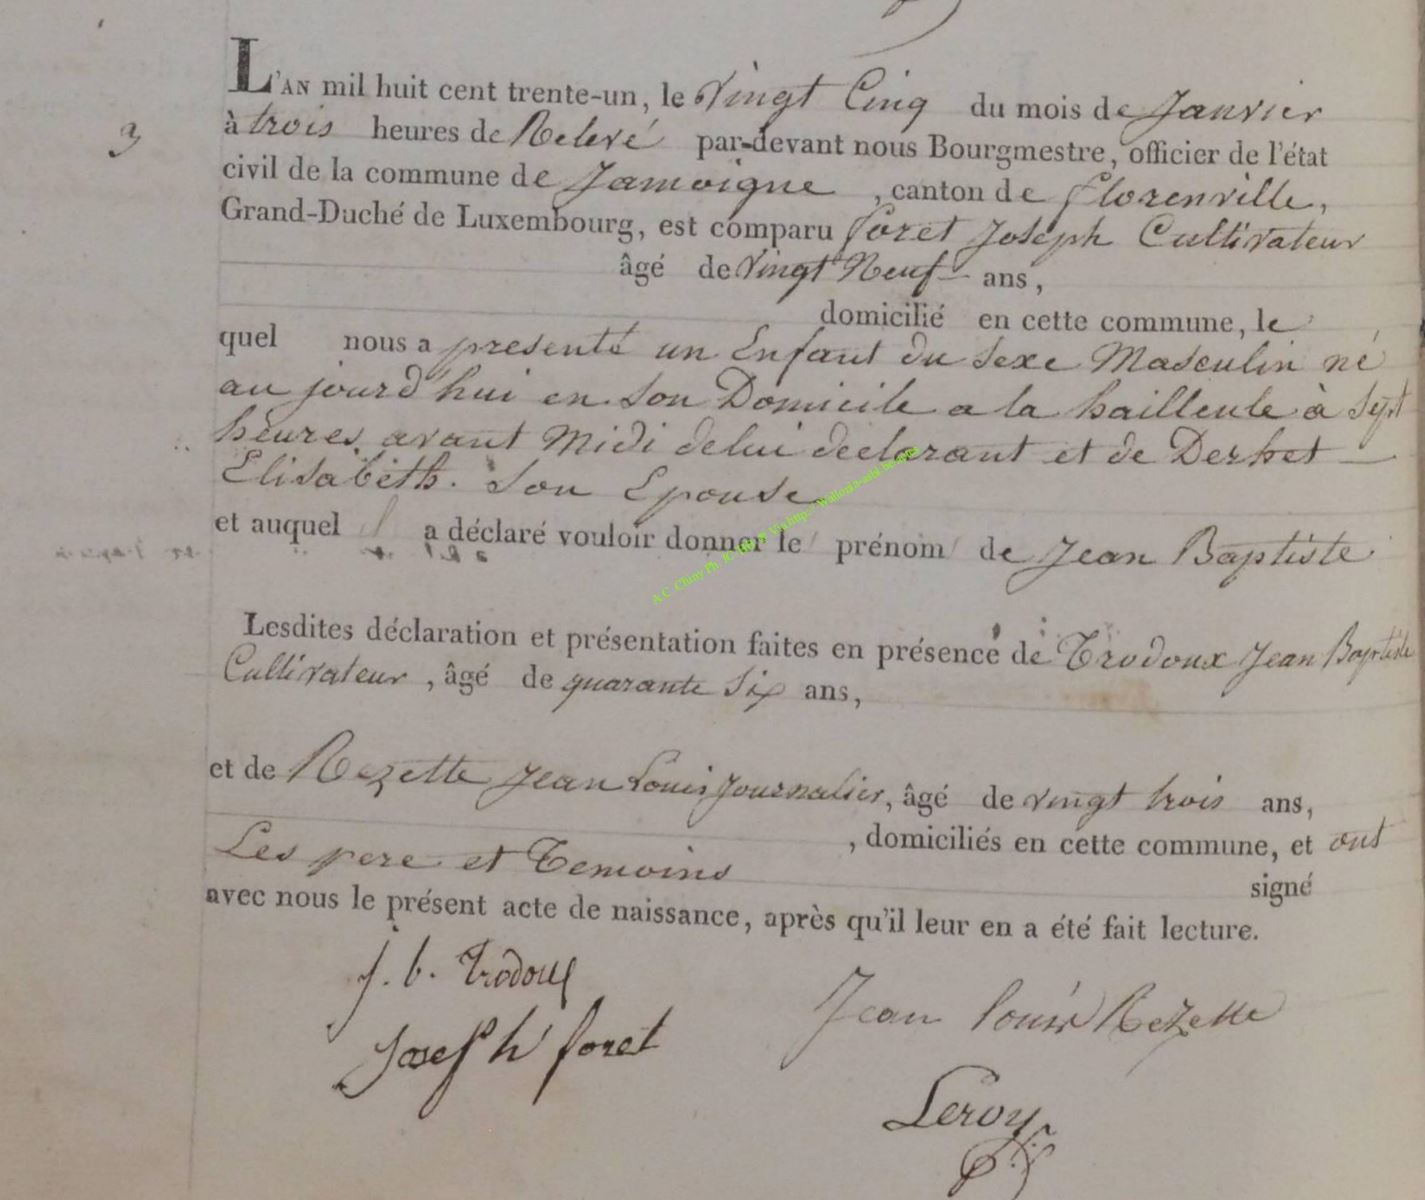 L'AN mil huit cent trente-un, le Vingt Cinq du mois de Janvier
3
à trois heures de Relevé par-devant nous Bourgmestre, officier de l'état
civil de la commune de Jamoigne, canton de florenville,
Grand-Duché de Luxembourg, est comparu foret Joseph Cultivateur
âgé de Vingt Neuf ans,
domicilié en cette commune, le
quel nous a presenté un Enfant du Sexe Masculin né
au jourd'hui en Son Domicile a la hailleule à Sept
heures avant Midi de lui declarant et de Derhet
Elisabeth. Son Epouse
et auquel il a déclaré vouloir donner le prénom de Jean Baptiste
Lesdites déclaration et présentation faites en présence de Trodoux Jean Baptiste
Cultivateur, âgé de quarante Six ans,
et de Rezette Jean Louis Journalier, âgé de vingt trois ans,
, domiciliés en cette commune, et ont
Les pere et Temoins signé
avec nous le présent acte de naissance, après qu'il leur en a été fait lecture.
j. b. Trodoux
Jean louis Rezette
Joseph foret
Leroy